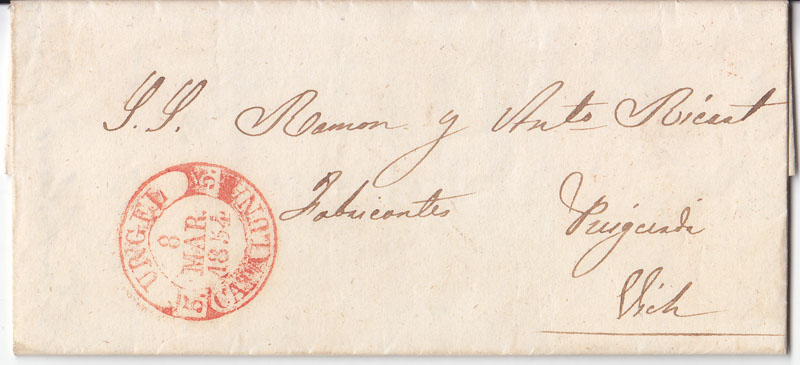 S. S. Ramon y Anto Ricart
Fabricantes
Puigcerdà
Vich
URGEL
8
MAR.
1854
CATALUÑA
5.
5.